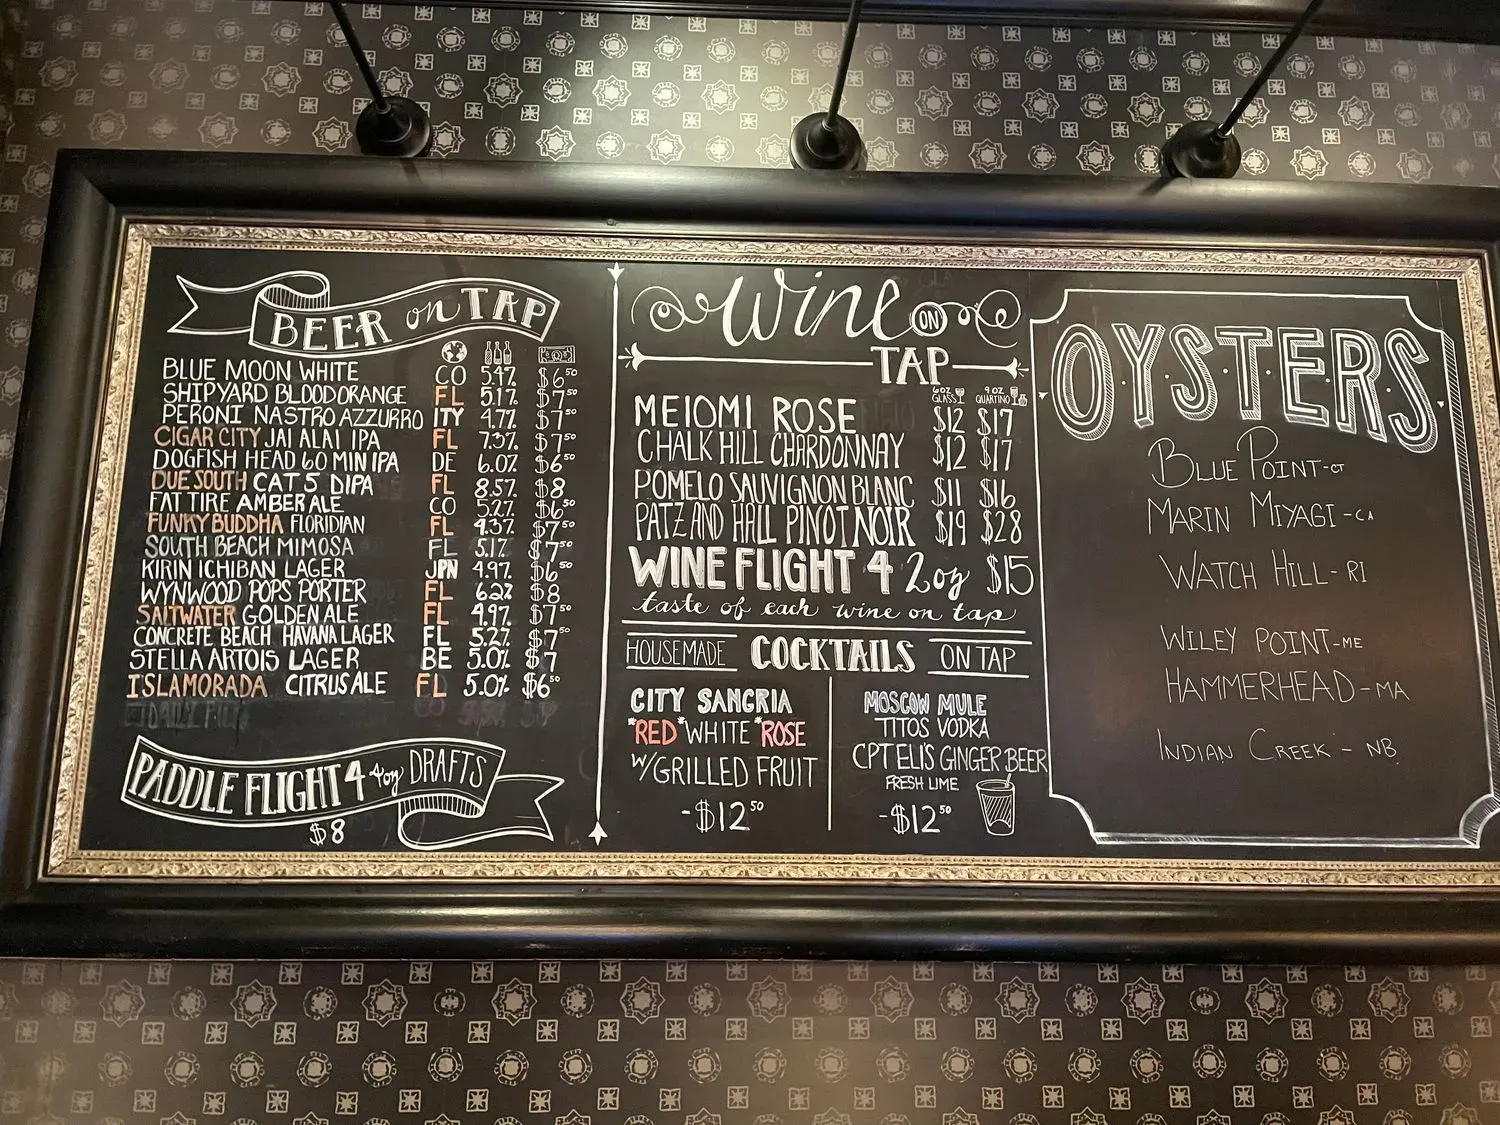 BEER on TAP
BLUE MOON WHITE CO 5.4% $6.50
SHIPYARD BLOODORANGE FL 5.1% $7.50
PERONI NASTRO AZZURRO ITY 4.7% $7.50
CIGAR CITY JAI ALAI IPA FL 7.5% $7.50
DOGFISH HEAD 60 MIN IPA DE 6.0% $6.50
DUE SOUTH CAT 5 DIPA FL 8.5% $8
FAT TIRE AMBER ALE CO 5.2% $6.50
FUNKY BUDDHA FLORIDIAN FL 4.3% $7.50
SOUTH BEACH MIMOSA FL 5.1% $7.50
KIRIN ICHIBAN LAGER JPN 4.9% $6.50
WYNWOOD POPS PORTER FL 6.2% $8
SALTWATER GOLDEN ALE FL 4.9% $7.50
CONCRETE BEACH HAVANA LAGER FL 5.2% $7.50
STELLA ARTOIS LAGER BE 5.0% $7
ISLAMORADA CITRUS ALE FL 5.0% $6.50
PADDLE FLIGHT 4 4oz DRAFTS
$8
Wine ON
TAP
6OZ GLASS 9 OZ QUARTINO
MEIOMI ROSE $12 $17
CHALK HILL CHARDONNAY $12 $17
POMELO SAUVIGNON BLANC $11 $16
PATZ AND HALL PINOT NOIR $19 $28
WINE FLIGHT 4 2oz $15
taste of each wine on tap
HOUSEMADE COCKTAILS ON TAP
CITY SANGRIA
*RED *WHITE *ROSE
W/GRILLED FRUIT
-$12.50
MOSCOW MULE
TITOS VODKA
CPT ELI'S GINGER BEER
FRESH LIME
-$12.50
OYSTERS
BLUE POINT-CT
MARIN MIYAGI-CA
WATCH HILL-RI
WILEY POINT-ME
HAMMERHEAD-MA
INDIAN CREEK-NB